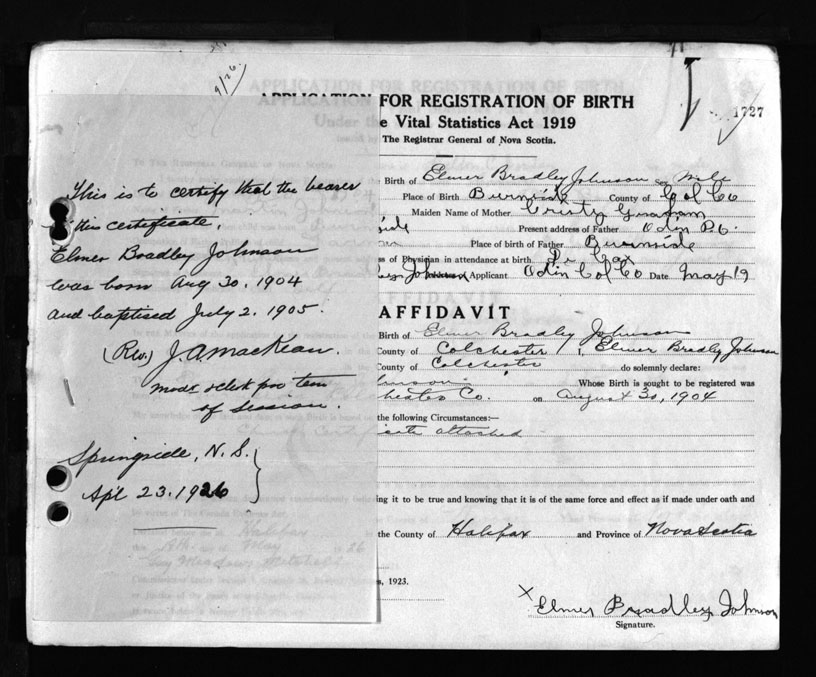 9/26
This is to certify that the bearer
of this certificate,
Elmer Bradley Johnson
was born Aug 30. 1904
and baptised July 2. 1905.
(Rev.) J. A. MacKean.
modr & clerk pro tem
of session.
Springside, N. S.
Apl 23. 1926
APPLICATION FOR REGISTRATION OF BIRTH
e Vital Statistics Act 1919
The Registrar General of Nova Scotia.
1727
Birth of Elmer Bradley Johnson
Place of Birth Burnside County of Col Co
Maiden Name of Mother Cristy Graham
side Present address of Father Odin P.O.
Place of birth of Father Burnside
s of Physician in attendance at birth. Dr Cox
Johnson Applicant Odin Col Co Date May 19
AFFIDAVIT
Birth of Elmer Bradley Johnson
County of Colchester I, Elmer Bradley Johnson
County of Colchester do solemnly declare:
hnson Whose Birth is sought to be registered was
chester Co. on August 30, 1904
the following Circumstances:—
icate attached
ing it to be true and knowing that it is of the same force and effect as if made under oath and
the County of Halifax and Province of Nova Scotia
s, 1923.
X Elmer Bradley Johnson
Signature.